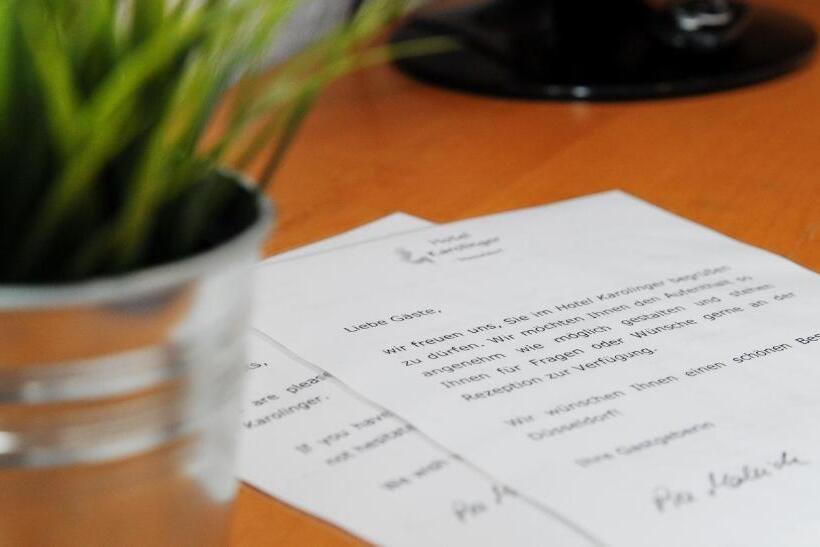 Hotel
Karolinger
Liebe Gäste,
wir freuen uns, Sie im Hotel Karolinger begrüßen
zu dürfen. Wir möchten Ihnen den Aufenthalt so
angenehm wie möglich gestalten und stehen
Ihnen für Fragen oder Wünsche gerne an der
Rezeption zur Verfügung.
Wir wünschen Ihnen einen schönen Bes
Düsseldorf!
Ihre Gastgeberin
Pia
s,
are please
Karolinger.
If you have
not hesitate
We wish
Pia M